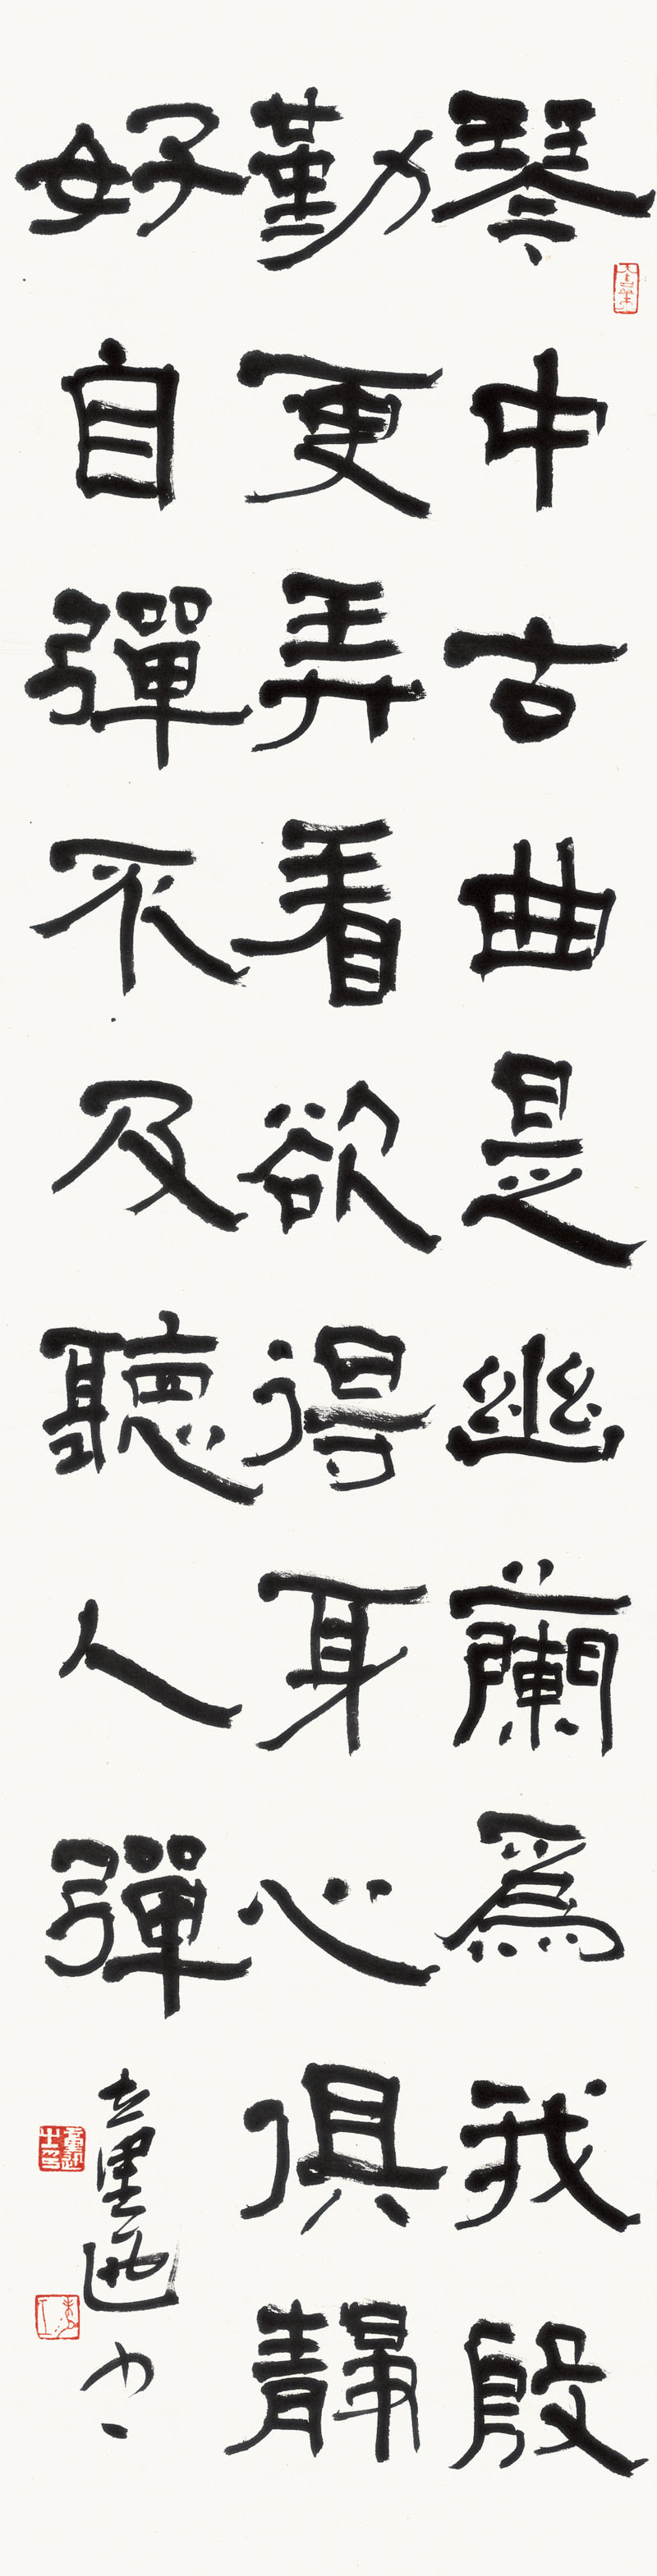 琴中古曲是幽蘭爲我殷
勤更弄看欲得身心俱靜
好自彈不及聽人彈